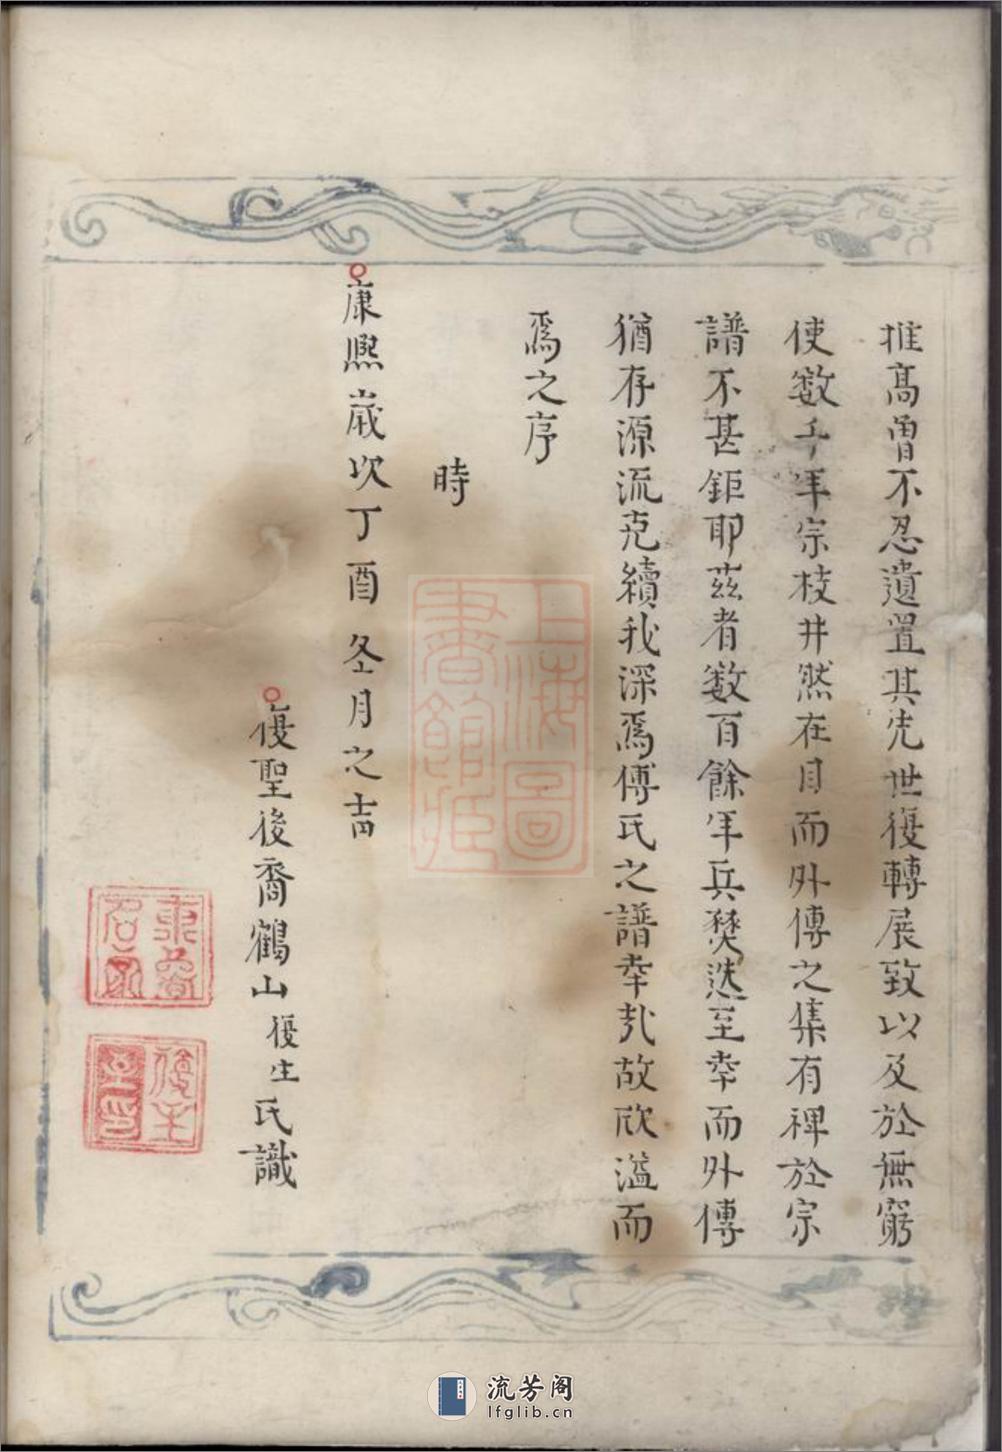 推高曾不忍遺置其先世復轉展致以及於無窮
使数千年宗枝井然在目而外傳之集有裨於宗
譜不甚鉅耶茲者数百餘年兵燹迭至幸而外傳
猶存源流克續我深爲傅氏之譜幸哉故欣溢而
爲之序
時
康熙歲次丁酉冬月之吉
復聖後裔鶴山復生氏識
上海圖書館藏
流芳阁
lfglib.cn